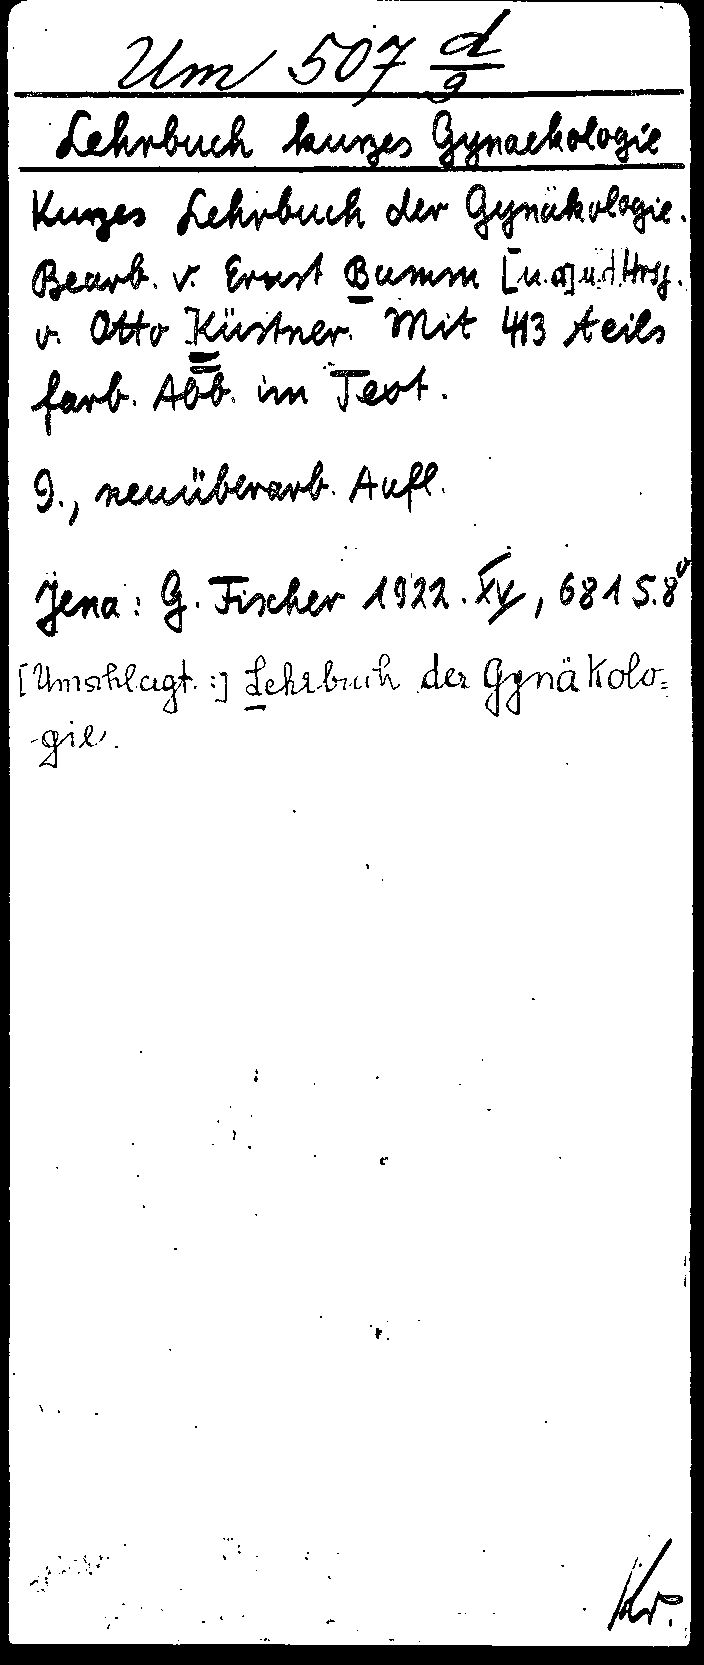 Um 507 d/9
Lehrbuch kurzes Gynaekologie
Kurzes Lehrbuch der Gynäkologie.
Bearb. v. Ernst Bumm [u.a.] u. d. Hrsg.
v. Otto Küstner. Mit 413 teils
farb. Abb. im Text.
9., neuüberarb. Aufl.
Jena: G. Fischer 1922. XV, 681 S. 8°
[Umschlagt.:] Lehrbuch der Gynäkolo=
gie.
Kr.